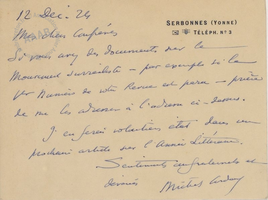 12 Déc. 24
SERBONNES (YONNE)
TÉLÉPH. N° 3
Mes chers Confrères
Si vous avez des documents sur le
Mouvement surréaliste – par exemple le
1er Numéro de votre Revue est paru – prière
de me les adresser à l'adresse ci-dessus.
J'en ferai volontiers état dans un
prochain article sur l'Année Littéraire.
Sentiments confraternels et
dévoués
Michel Corday